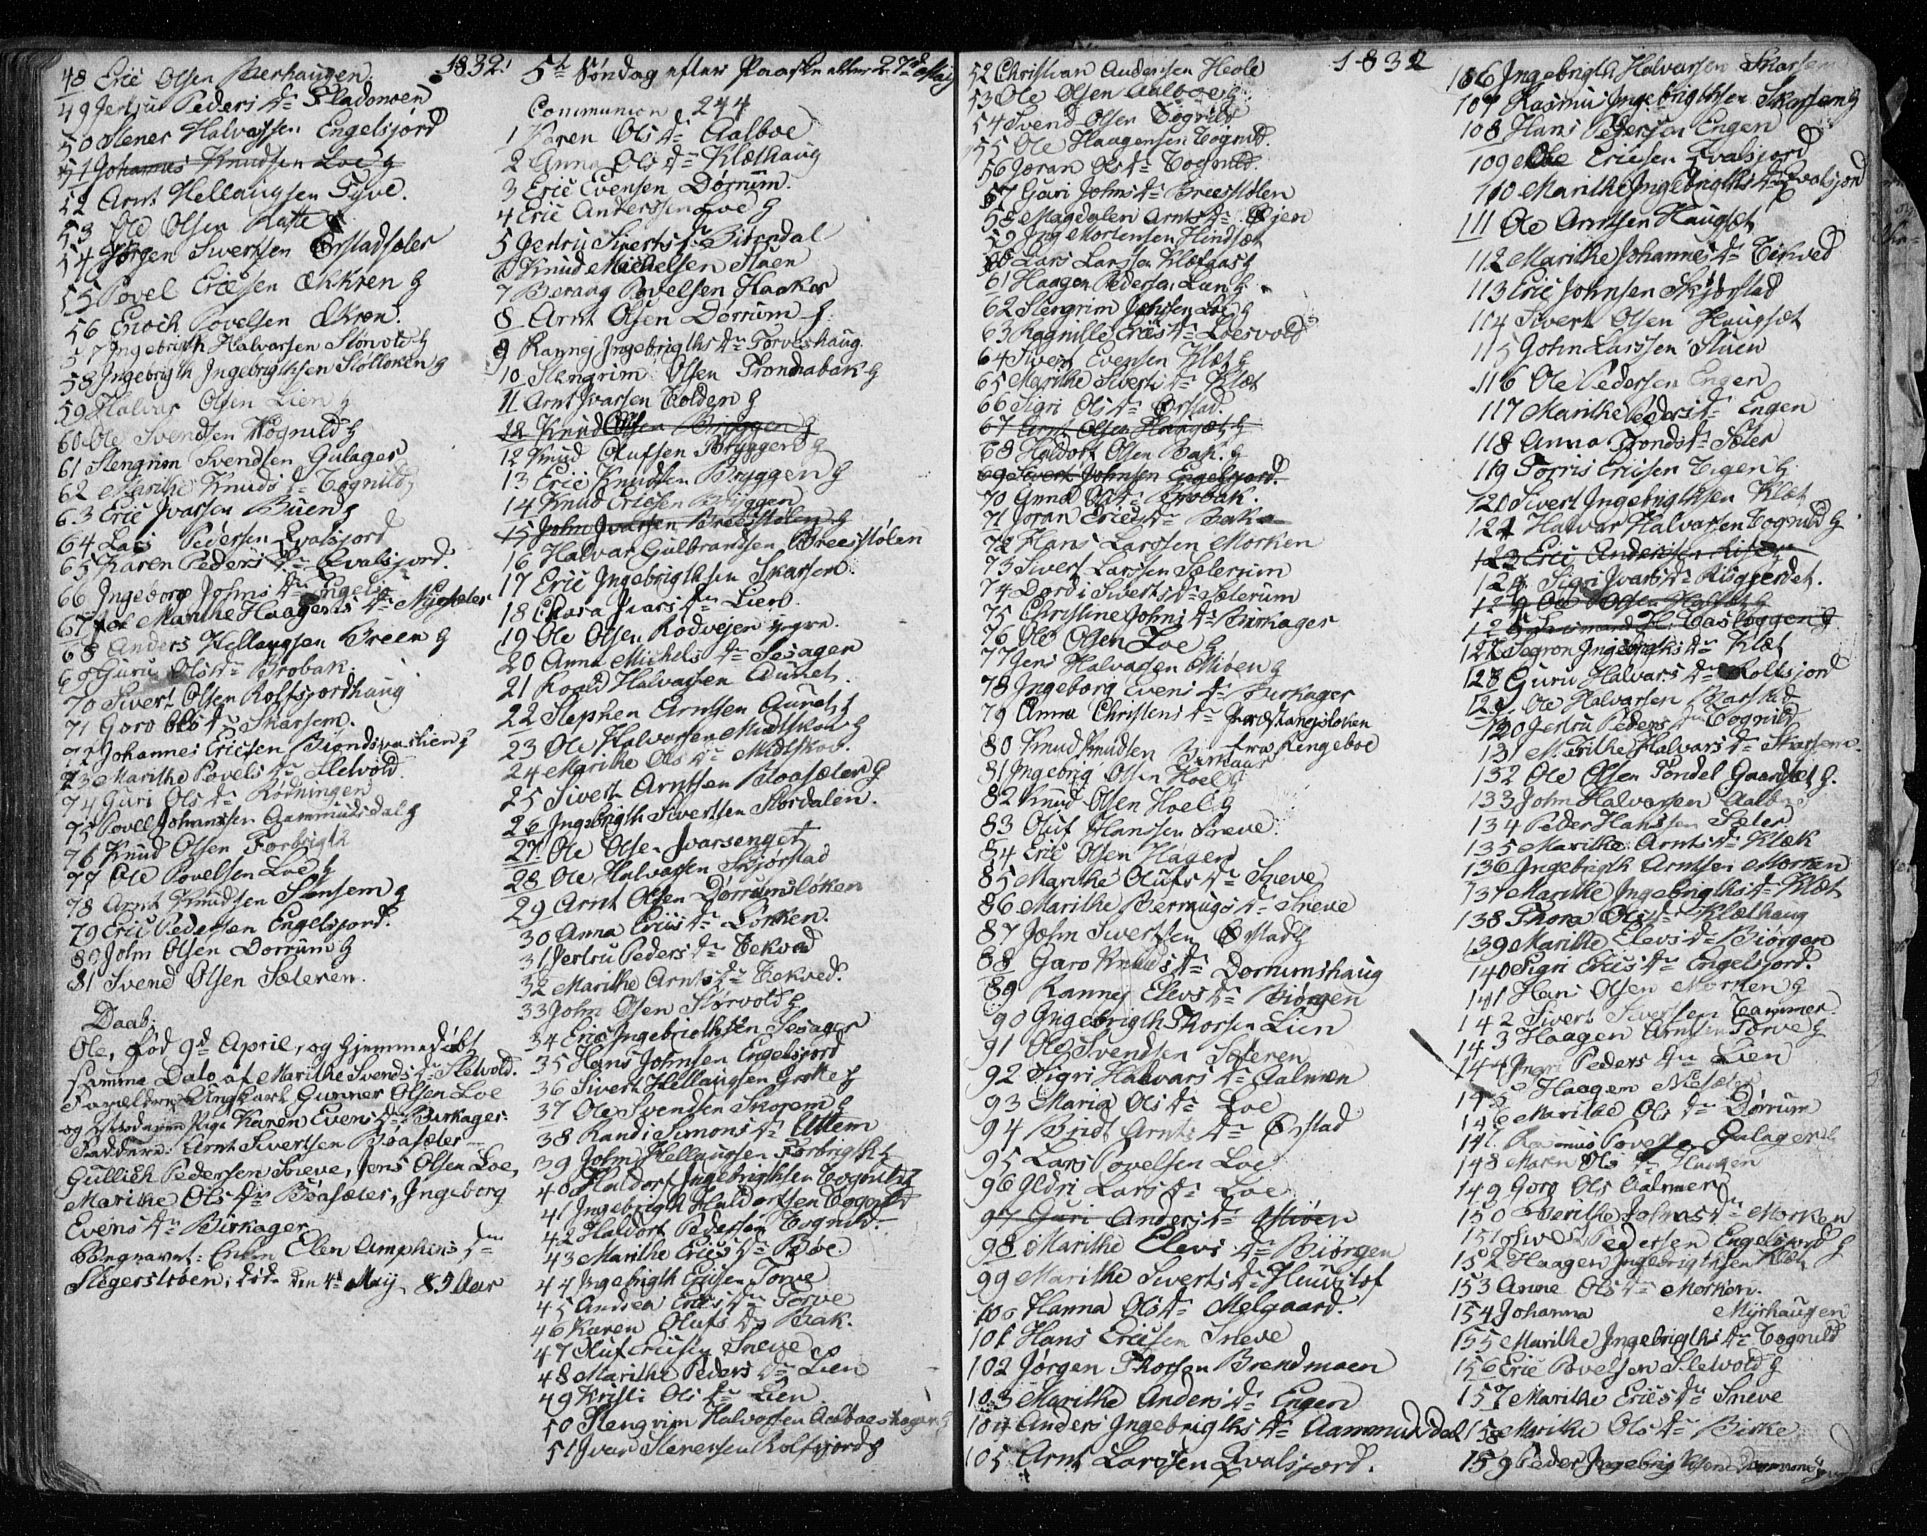 1832.
48 Eric Olsen Berhaugen
49 Jertru Peders Dr. Fladomoen
50 Stener Halvorsen Engelsjord
51 Johannes Knudsen Loe g
52 Arnt Hellaugsen Fyve.
53 Ole Olsen
54 Jørgen Sivertsen Ørstadsæter
55 Povel Ericsen Ekkren g
56 Enoch Povelsen Ekren.
57 Ingebrigth Halvorsen Slørvold g
58 Ingebrigth Ingebrigthsen Slølloken g
59 Halvor Olsen Lien g
60 Ole Svendsen Tognild g
61 Stengrim Svendsen Gulager
62 Marithe Knuds Dr. Tognild
63 Eric Ivarsen Buen g
64 Lars Pedersen Qvalsjord
65 Karen Peders Dr. Qvalsjord.
66 Ingeborg Johns Dr. Engelsj
67 Marithe Haagens Dr. Nysæter
68 Anders Hellaugsen Breen g
69 Guru Ols Dr. Brobak.
70 Sivert Olsen Rolfsjordhaug
71 Goro Ols Dr. Skarsem.
72 Johannes Ericsen g
73 Marithe Povels Dr. Sletvold.
74 Guri Ols Dr. Rødningen
75 Povel Johansen Aammundsdal g
76 Knud Olsen Forbrigth
77 Ole Povelsen Loe g
78 Arnt Knudsen Stensem g
79 Eric Pedersen Engelsjord.
80 John Olsen Dorrum g
81 Svend Olsen Sæteren.
Daab:
Ole, fød 9d April, og hjemmedøbt
samme Dato af Marithe Svends Dr. Sletvold.
Forældre: Ungkarl Gunner Olsen Loe
og Pige Karen Evens Dr. Birkager.
Faddere: Arnt Sivertsen Boasæter
Gullich Pedersen Sneve, Jens Olsen Loe,
Marithe Ols Dr. Boasæter, Ingeborg
Evens Dr. Birkager
Begravet: Enken Elen Amphins Dr.
Slegersloben, død den 4d May, 85 Aar
5te Søndag efter Paaske eller 27d May
Communion 244
1 Karen Ols Dr. Aalboe
2 Anna Ols Dr. Klæthaug
3 Eric Evensen Dørrum.
4 Eric Andersen Loe g
5 Jertru Siverts Dr. Biørndal
6 Knud Michelsen Staen
7 Beraug Povelsen Haaker
8 Arnt Olsen Dorrum g.
9 Ranng Ingebrigths Dr. Torveshaug.
10 Stengrim Olsen Trondabak g
11 Arnt Ivarsen Holden g
12 Knud Olsen Bryggen g
12 Knud Olufsen Bryggen g
13 Eric Knudsen Bryggen g
14 Knud Ericsen Bryggen
15 John Ivarsen Breesstølen g
16 Halvor Gulbrandsen Breesstølen
17 Eric Ingebrigthsen Skarsem.
18 Chara Ivars Dr. Lien.
19 Ole Olsen Rodvejen ygre.
20 Anna Michels Dr. Sesagen
21 Roald Halvorsen Aunet.
22 Stephen Arntsen Aunet g
23 Ole Halvorsen Midtskou g
24 Marithe Ols Dr. Midtskov.
25 Sivert Arntsen Boasæter g
26 Ingebrigth Sivertsen Stordalen.
27 Ole Olsen Ivarsenget
28 Ole Halvorsen Skjørstad
29 Arnt Olsen Dorrumsløken
30 Anna Erics Dr. Lirken.
31 Jertru Peders Dr. Tekved
32 Marithe Arnts Dr. Tekved.
33 John Olsen Slørvold g
34 Eric Ingebrigthsen Sesager
35 Hans Johnsen Engelsjord
36 Sivert Hellaugsen Grotte g
37 Ole Svendsen Skorem g
38 Randi Simons Dr. Uttem
39 John Hellaugsen Forbrigth g
40 Haldor Ingebrigthsen Tognild
41 Ingebrigth Haldorsen Tognild
42 Haldort Pedersen Tognild.
43 Marithe Erics Dr. Bøe.
44 Ingebrigth Ericsen Torve
45 Andrea Erics Dr. Torve
46 Karen Olufs Dr. Bak.
47 Oluf Ericsen Sneve
48 Marithe Peders Dr. Lien
49 Kristi Ols Dr. Lien
50 Stengrim Halvorsen Aalboeshagen g
51 Ivar Stenersen Rolfsjord g
1832
52 Christian Andersen Heole
53 Ole Olsen Aalboe g
54 Svend Olsen Tognild
55 Ole Haagensen Tognild.
56 Joran Ols Dr. Tognild.
57 Guri Johns Dr. Breesstølen
58 Magdalen Arnts Dr. Øjen
59 Ing Mortensen Hindsæt
60 Lars Larsen Klæfgast
61 Haagen Pedersen Lien g.
62 Stengrim Johnsen Loe g
63 Ragnille Erics Dr. Loesvold
64 Sivert Evensen Klæt g
65 Marithe Siverts Dr. Klæt
66 Sigri Ols Dr. Ørstad.
67 Olsen Haugsæt g
68 Haldort Olsen Bak. g
69 Sivert Johnsen Engelsjord.
70 Anne Ols Dr. Brobak.
71 Joran Erics Dr. Bak
72 Hans Larssen Morken
73 Sivert Larssen Sæterum
74 Dordi Siverts Dr. Sæterum
75 Christine Johns Dr. Birkager
76 Ole Olsen Loe g
77 Jens Halvorsen Mioen g
78 Ingeborg Evens Dr. Birkager
79 Anne Christens Dr.
80 Knud Knudsen fra Ringeboe
81 Ingebrig Olsen Hoel g
82 Knud Olsen Hoel g
83 Oluf Hanssen Sneve.
84 Eric Olsen Hagen
85 Marithe Olufs Dr. Sneve
86 Marithe Bernugs Dr. Sneve
87 John Sivertsen Ørstad g
88 Jaro Knuds Dr. Dorrumshaug
89 Ranneg Elevs Dr. Biørgen
90 Ingebrigth Thorsen Lien
91 Ole Svendsen Sæteren
92 Sigri Halvors Dr. Aalmen
93 Maria Ols Dr. Loe
94 Brit Arnts Dr. Ørstad
95 Lars Povelsen Loe
96 Ildri Lars Dr. Loe
97 Guri Anders Dr. Mioen
98 Marithe Elevs Dr. Biørgen
99 Marithe Siverts Dr. Huustof
100 Hanna Ols Dr. Melgaard.
101 Hans Ericsen Sneve
102 Jørgen Thorsen Brendmoen
103 Marithe Anders Dr. Engen
104 Anders Ingebrigths Dr. Aammundsdal
105 Arnt Larssen Qvalsjord.
106 Ingebrigth Halvorsen Skarsem
107 Rasmus Ingebrigthsen Skarsem g
108 Hans Pedersen Engen
109 Ole Ericsen Qvalsjord
110 Marithe Ingebrigths Dr. Qvalsjord
111 Ole Arntsen Haugsæt
112 Marithe Johannes Dr. Tekved
113 Eric Johnsen Skjørstad
114 Sivert Olsen Haugsæt
115 John Larssen Stuen
116 Ole Pedersen Engen
117 Marithe Peders Dr. Engen
118 Anna Tronds Dr. Sæter
119 Torris Ericsen Teigen g
120 Sivert Ingebrigthsen Klæt
121 Halvor Halvorsen Tognild g
123 Eric Andersen
124 Sigri Ivars Dr. Risgjerdet.
Ole Olsen
126
127 Segron Ingebrigths Dr. Klæt
128 Guru Halvors Dr. Rolfsjord
129 Ole Halvorsen Barstad
130 Jertru Peders Dr. Tognild
131 Marithe Halvors Dr. Skarsem.
132 Ole Olsen Tondel Gaardset g.
133 John Halvorsen Aalboe
134 Peder Hanssen Sæter
135 Marithe Arnts Dr. Klæk
136 Ingebrigth Arntsen Morken
137 Marithe Ingebrigths Dr. Klæt
138 Thora Ols Dr. Klæthaug
139 Marithe Elevs Dr. Biørgen
140 Sigri Erics Dr. Engelsjord.
141 Hans Olsen Morken g
142 Sivert Sivertsen Tammer.
143 Haagen Arntsen Torve g
144 Ingri Peders Dr. Lien
145 Haagen
146 Marithe Ols Dr. Dørrum
147 Rasmus Povelsen Gulager
148 Maren Ols Dr. Haagen
149 Goro Ols Aalmen
150 Berithe Johnas Dr. Morken
151 Sivert Pedersen Engelsjord g
152 Haagen Ingebrigthsen Klæt
153 Anne Ols Dr. Morken.
154 Johanna Myrhaugen
155 Marithe Ingebrigths Dr. Tognild
156 Eric Povelsen Sletvold g
157 Marithe Erics Dr. Sneve
158 Marithe Ols Dr. Birke
159 Peder Ingebrigthsen